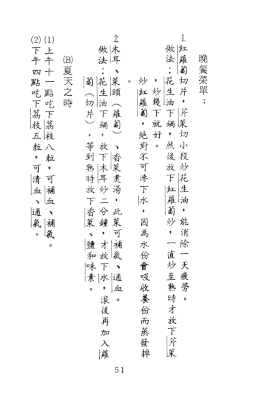 晚餐菜單：
1.紅蘿蔔切片，芹菜切小段炒花生油，能消除一天疲勞。
做法：花生油下鍋，然後放下紅蘿蔔炒，一直炒至熟時才放下芹菜
，炒幾下就好。
炒紅蘿蔔，絕對不可滲下水，因為水份會吸收養份而蒸發掉
。
2.木耳、菜頭（蘿蔔）、香菜煮湯，此菜可補氣、通血。
做法：花生油下鍋，放下木耳炒二分鐘，才放下水，滾後再加入蘿
蔔（切片），等到熟時放下香菜、鹽和味素。
(B)夏天之時
(1)上午十一點吃下荔枝八粒，可補血、補氣。
(2)下午四點吃下荔枝五粒，可清血、通氣。
51